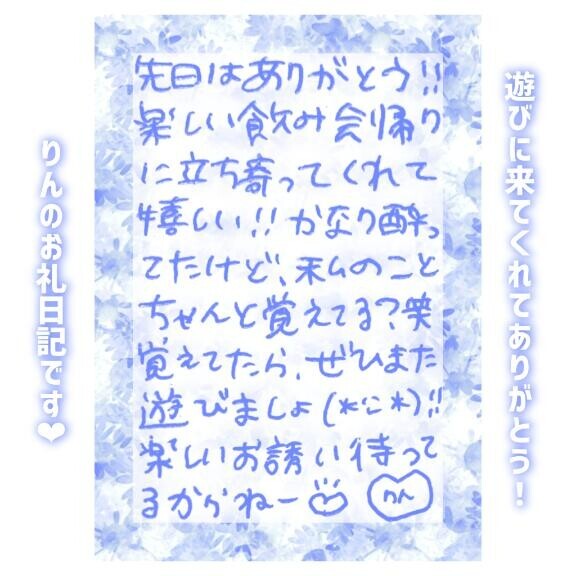 遊びに来てくれてありがとう!
先日はありがとう!!
楽しい飲み会帰り
に立ち寄ってくれて
嬉しい!!かなり酔っ
てたけど、私のこと
ちゃんと覚えてる?笑
覚えてたら、ぜひまた
遊びましょ(*ˊᵕˋ*)!!
楽しいお誘い待って
るからねー
りん
りんのお礼日記です❤